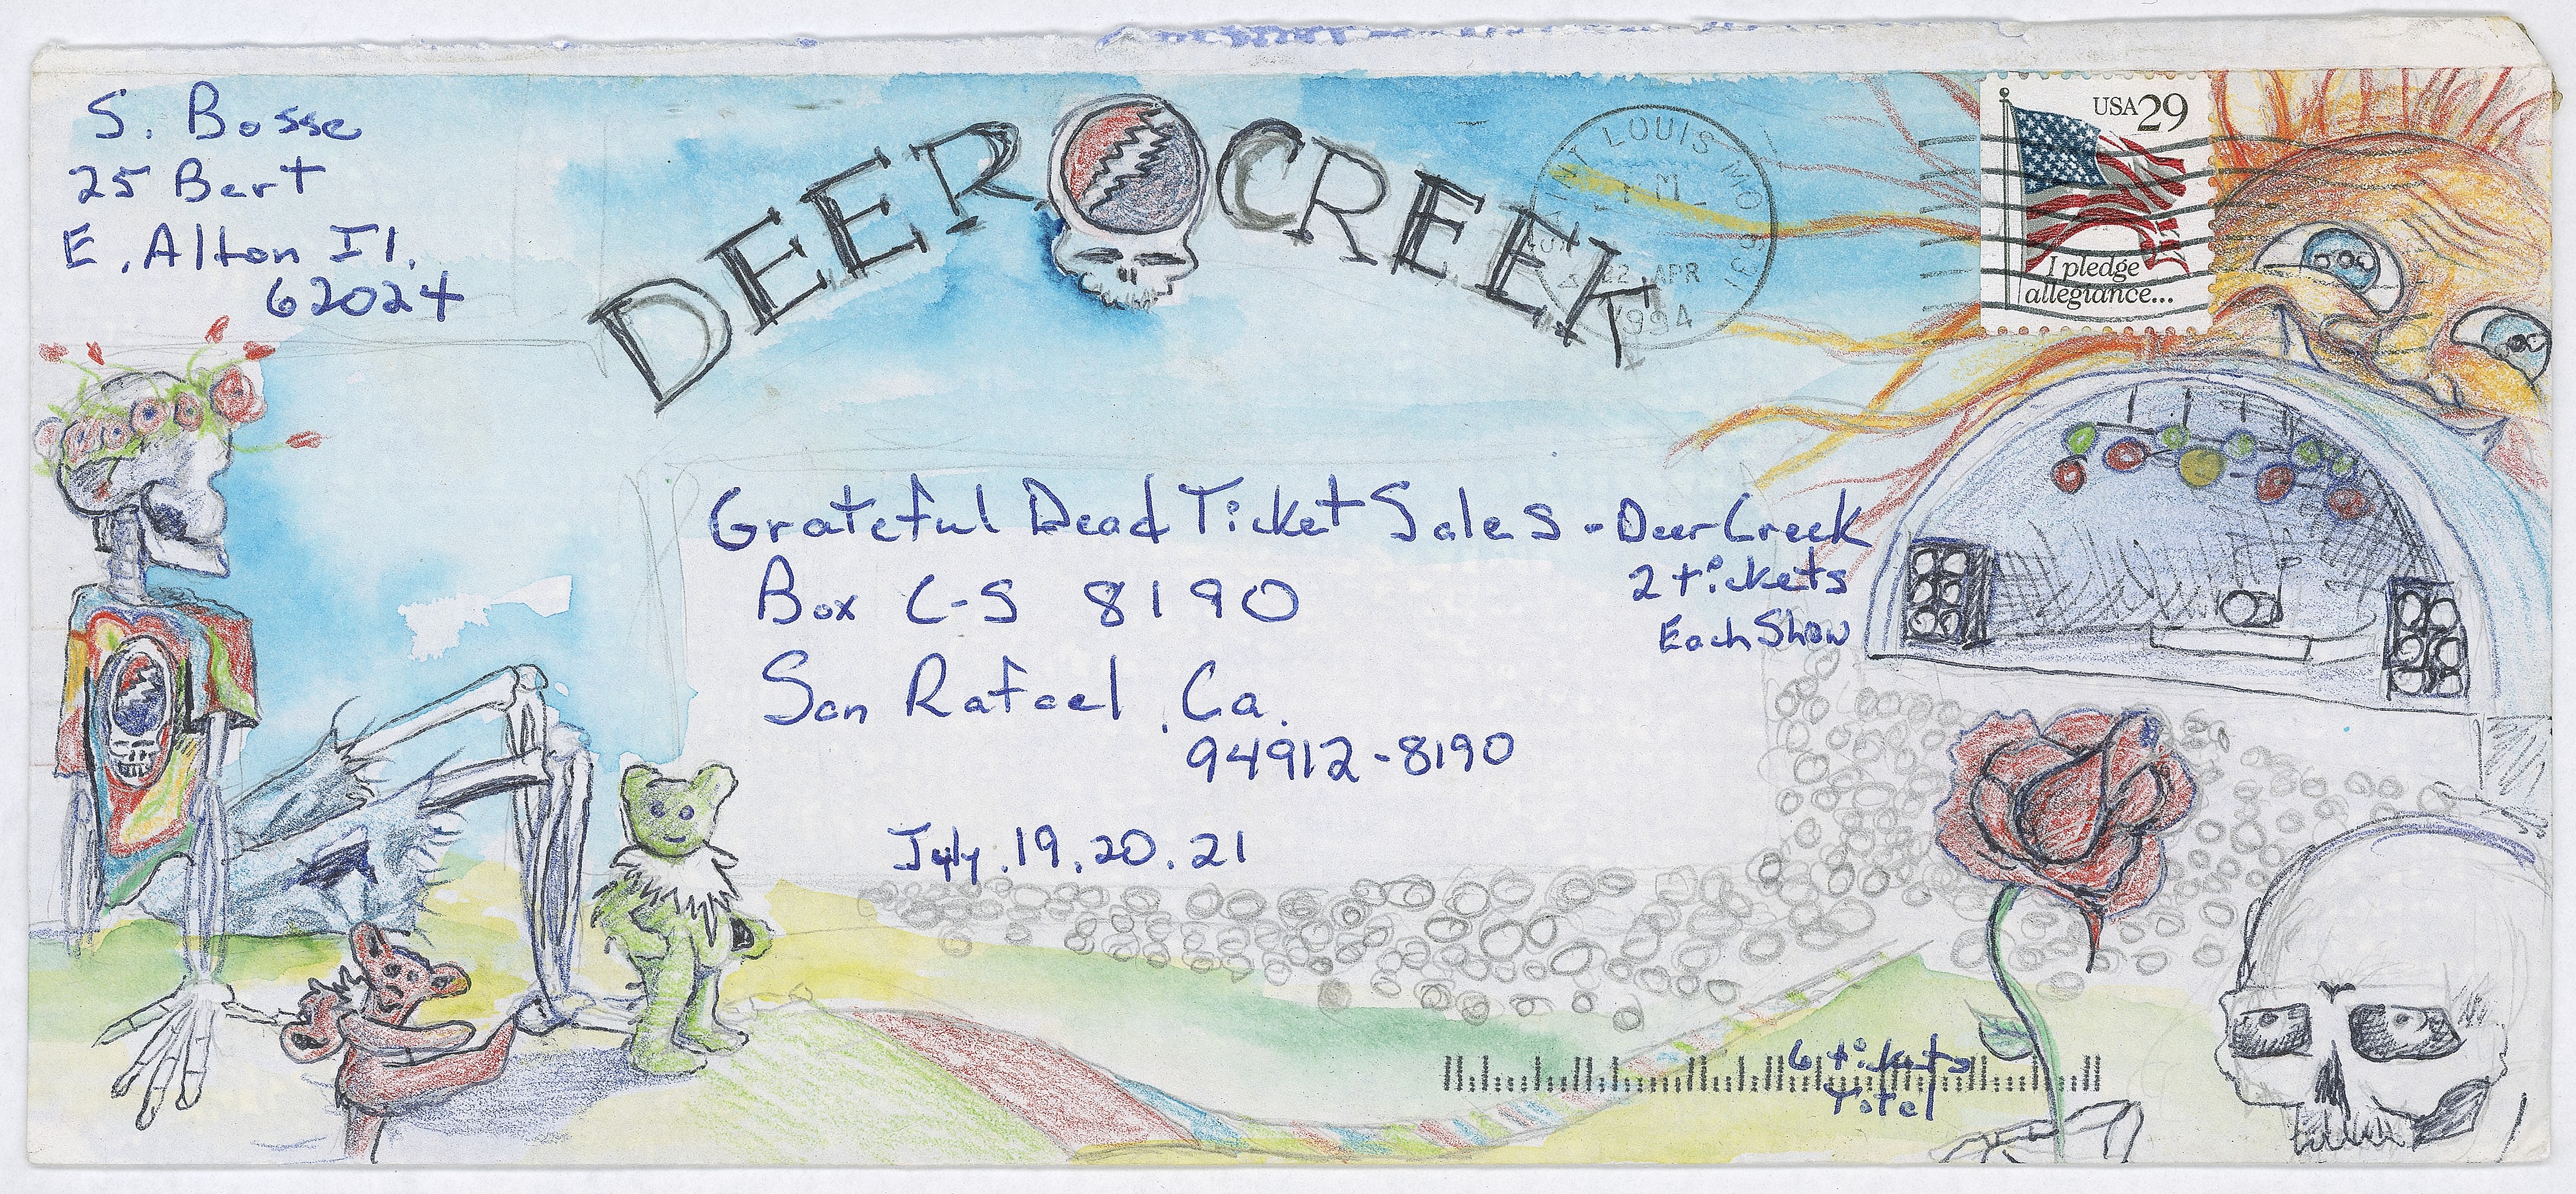 S. Bosse
25 Bert
E. Alton Il.
62024
DEER CREEK
SAINT LOUIS MO 631
22 APR
1994
USA 29
I pledge
allegiance...
Grateful Dead Ticket Sales - Deer Creek
2 tickets
Each Show
Box C-S 8190
San Rafael, Ca.
94912-8190
July. 19. 20. 21
6 tickets
Total